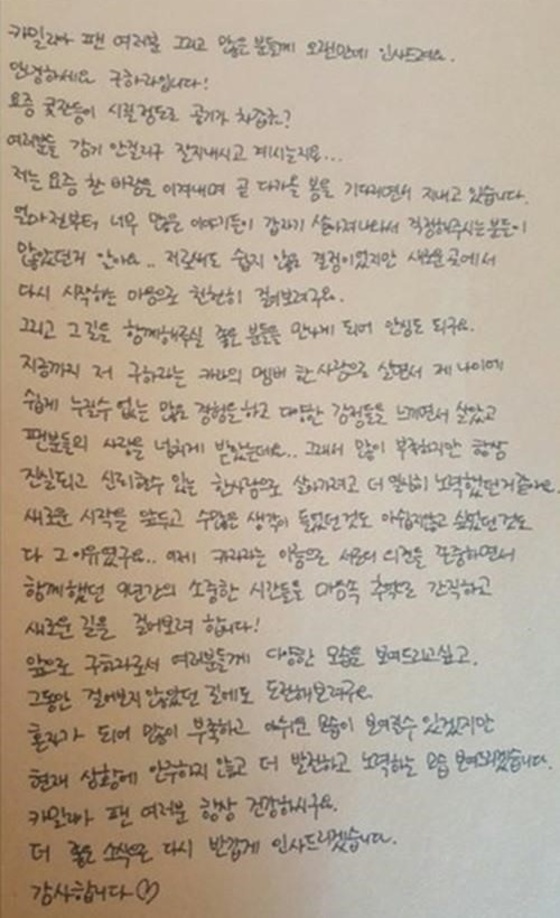 카밀리아 팬 여러분 그리고 많은 분들께 오랜만에 인사드려요.
안녕하세요 구하라입니다!
요즘 귓판등이 시릴정도로 공기가 차갑죠?
여러분들 감기 안걸리구 잘지내시고 계시는지요...
저는 요즘 찬 바람을 이겨내며 곧 다가올 봄을 기다리면서 지내고 있습니다.
얼마전부터 너무 많은 이야기들이 갑자기 쏟아져나와서 걱정해주시는분들이
많았던거 알아요.. 저로써도 쉽지 않은 결정이었지만 새로운 곳에서
다시 시작하는 마음으로 천천히 걸어보려구요.
그리고 그 길을 함께해주실 좋은 분들을 만나게 되어 안심도 되구요.
지금까지 저 구하라는 카라의 멤버 한 사람으로 살면서 제 나이에
쉽게 누릴수 없는 많은 경험을하고 다양한 감정들을 느끼면서 살았고
팬분들의 사랑을 넘치게 받았는데요.. 그래서 많이 부족하지만 항상
진실되고 신뢰할수 있는 한사람으로 살아가려고 더 열심히 노력했던거같아요.
새로운 시작을 앞두고 수많은 생각이 들었던것도 아쉽지않고 싶었던것도
다 그 이유였구요.. 이제 카라라는 이름으로 서로의 의견을 존중하면서
함께했던 9년간의 소중한 시간들을 마음속 추억으로 간직하고
새로운 길을 걸어보려 합니다!
앞으로 구하라로서 여러분들께 다양한 모습을 보여드리고싶고,
그동안 걸어보지 않았던 길에도 도전해보려구요.
혼자가 되어 많이 부족하고 아쉬운 모습이 보여질수 있겠지만
현재 상황에 안주하지 않고 더 발전하고 노력하는 모습 보여드리겠습니다.
카밀리아 팬 여러분 항상 건강하시구요.
더 좋은 소식으로 다시 반갑게 인사드리겠습니다.
감사합니다♡